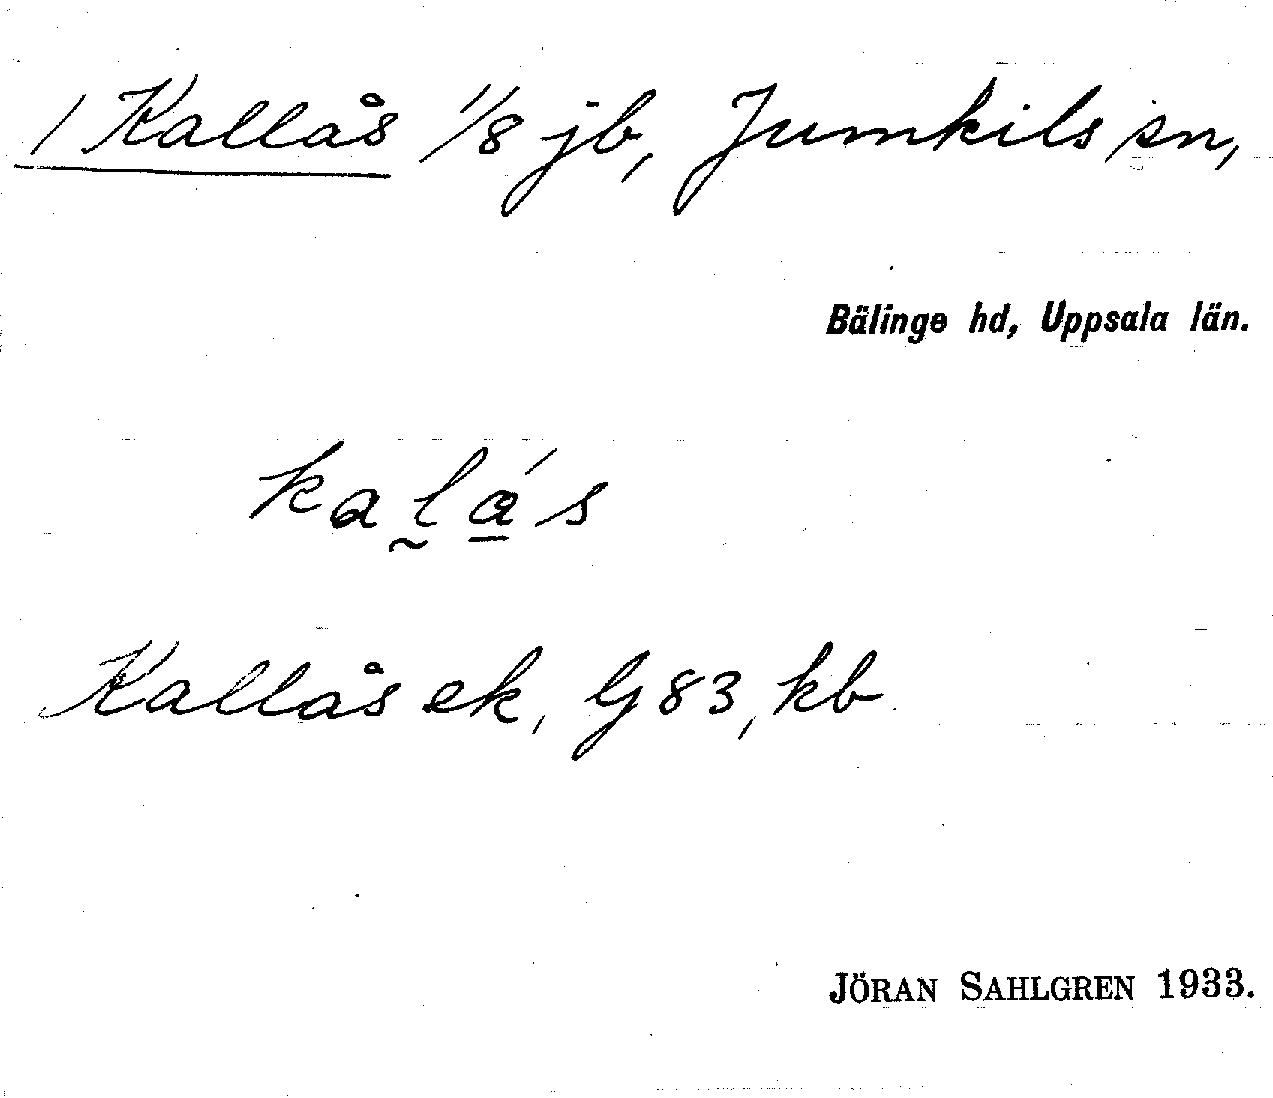 1 Kallås 1/8 jb, Jumkils sn,
Bälinge hd, Uppsala län.
kala's
Kallås ek, G 83, kb
JÖRAN SAHLGREN 1933.